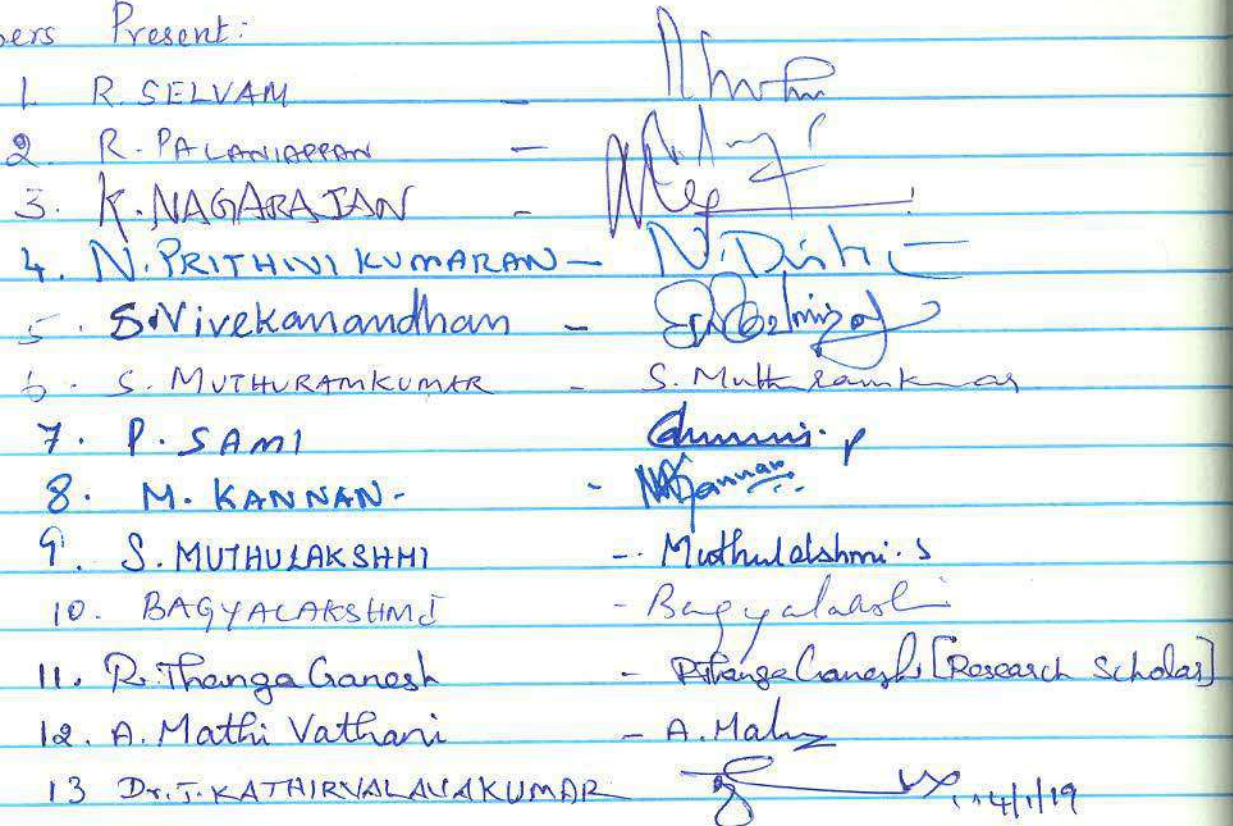 bers Present:
1. R. SELVAM -
2. R. PALANIAPPAN -
3. K. NAGARAJAN -
4. N. PRITHIVI KUMARAN -
5. S. Vivekanandhan -
6. S. MUTHURAMKUMAR - S. Muthuramkumar
7. P. SAMI
8. M. KANNAN - - M Kannan
9. S. MUTHULAKSHMI - Muthulakshmi. S
10. BAGYALAKSHMI - Bagyalakshmi
11. R. Thanga Ganesh - R. Thanga Ganesh [Research Scholar]
12. A. Mathi Vathani - A.
13 Dr. T. KATHIRVALAVAKUMAR 4/1/19